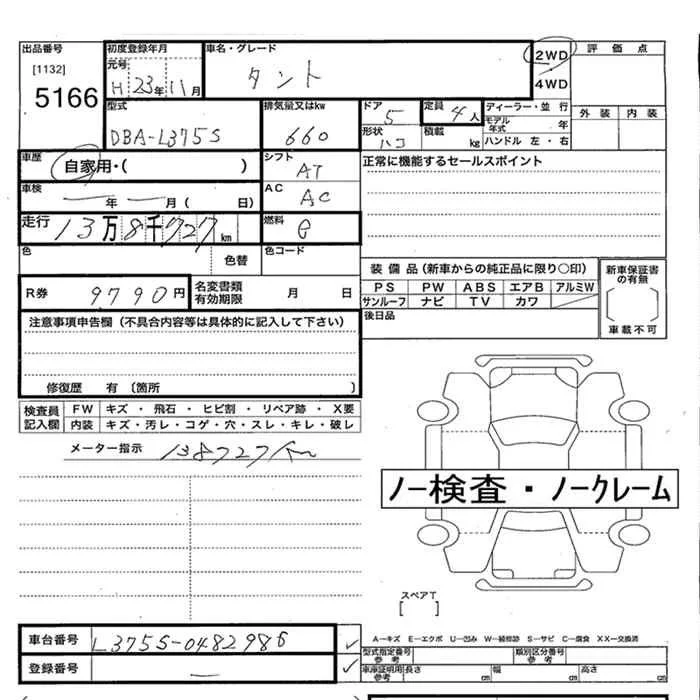 出品番号 初度登録年月 車名・グレード 2WD 評価点
[1132] 元号 タント 4WD
5166 H 23年 11月 外装 内装
型式 排気量又はkw ドア 定員 ディーラー・並行
DBA-L375S 660 5 4人 モデル年式 年
形状 ハコ 積載 kg ハンドル 左・右
車歴 自家用・( ) シフト AT 正常に機能するセールスポイント
車検 年 月( 日) AC AC
走行 13万8千727km 燃料 e
色 色替 色コード
装備品(新車からの純正品に限り〇印) 新車保証書の有無
R券 9790円 名変書類有効期限 月 日 PS PW ABS エアB アルミW
サンルーフ ナビ TV カワ
注意事項申告欄(不具合内容等は具体的に記入して下さい) 後日品 車載不可
修復歴 有(箇所 )
検査員記入欄 FW キズ・飛石・ヒビ割・リペア跡・X要
内装 キズ・汚レ・コゲ・穴・スレ・キレ・破レ
メーター指示 138727km
ノー検査・ノークレーム
スペアT
[ ]
車台番号 L375S-0482986 ✓
A―キズ E―エクボ U―凹み W―補修跡 S―サビ C―腐食 XX―交換済
型式指定番号参考 類別区分番号参考
登録番号 — ✓ 車庫証明用参考 長さ cm 幅 cm 高さ cm